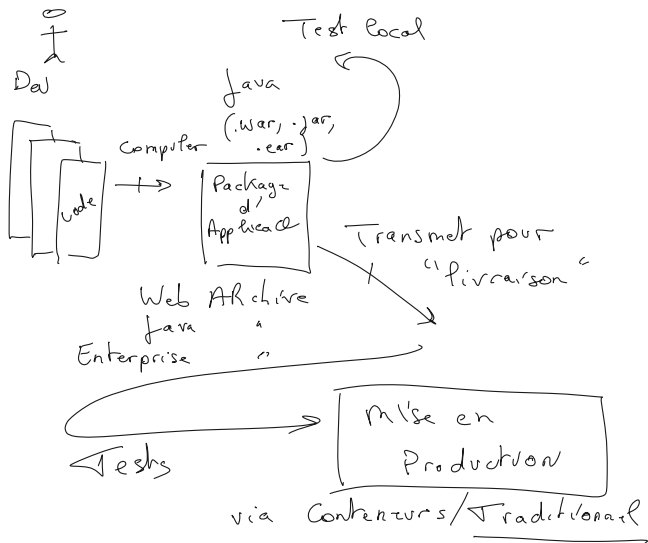 Test local
Dev
Java
(.war, .jar,
.ear)
Compiler
code
Package
d'
Applicat°
Transmet pour
"livraison"
Web ARchive
Java "
Enterprise "
Tests
Mise en
Production
via Conteneurs/Traditionnel